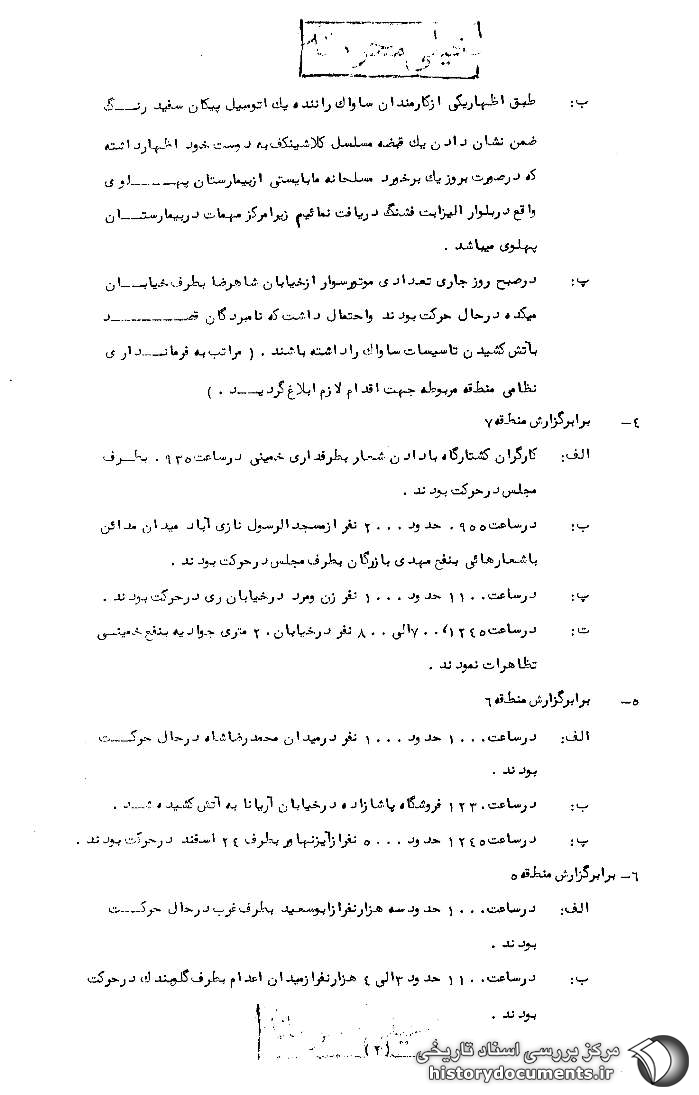 خیلی محرمانه
ب: طبق اظهاریکی ازکارمندان ساواك راننده یك اتومبیل پیکان سفید رنــگ
ضمن نشان دادن یك قبضه مسلسل کلاشینکف به دوست خود اظهارداشته
که درصورت بروز یك برخورد مسلحانه مابایستی ازبیمارستان پهــلوی
واقع دربلوار الیزابت فشنگ دریافت نمائیم زیرامرکز مهمات دربیمارستــان
پهلوی میباشد .
پ: درصبح روز جاری تعدادی موتورسوار ازخیابان شاهرضا بطرف خیابــان
میکده درحال حرکت بودند واحتمال داشت که نامبردگان قصــد
بآتش کشیدن تاسیسات ساواك راداشته باشند . ( مراتب به فرمانــداری
نظامی منطقه مربوطه جهت اقدام لازم ابلاغ گردیــد . )
٤- برابرگزارش منطقه ۷
الف: کارگران کشتارگاه بادادن شعار بطرفداری خمینی درساعت ۰۹۳۵ بطــرف
مجلس درحرکت بودند .
ب: درساعت ۰۹۵۵ حدود ۲۰۰۰ نفر ازمسجدالرسول نازی آباد میدان مدائن
باشعارهائی بنفع مهدی بازرگان بطرف مجلس درحرکت بودند .
پ: درساعت ۱۱۰۰ حدود ۱۰۰۰ نفر زن ومرد درخیابان ری درحرکت بودند .
ت: درساعت ۱۲٤۵ ۷۰۰الی ۸۰۰ نفر درخیابان ۲۰ متری جوادیه بنفع خمینــی
تظاهرات نمودند .
۵- برابرگزارش منطقه ۶
الف: درساعت ۱۰۰۰ حدود ۱۰۰۰ نفر درمیدان محمدرضاشاه درحال حرکــت
بودند .
ب: درساعت ۱۲۳۰ فروشگاه پاشازاده درخیابان آریانا به آتش کشیده شــد .
پ: درساعت ۱۲٤۵ حدود ۵۰۰۰ نفرازآیزنهاور بطرف ۲٤ اسفند درحرکت بودند .
۶- برابرگزارش منطقه ۵
الف: درساعت ۱۰۰۰ حدود سه هزارنفرازابوسعید بطرف غرب درحال حرکــت
بودند .
ب: درساعت ۱۱۰۰ حدود ۳الی ٤ هزارنفرازمیدان اعدام بطرف گلوبندك درحرکت
بودند .
(۲)
مرکز بررسی اسناد تاریخی
historydocuments.ir